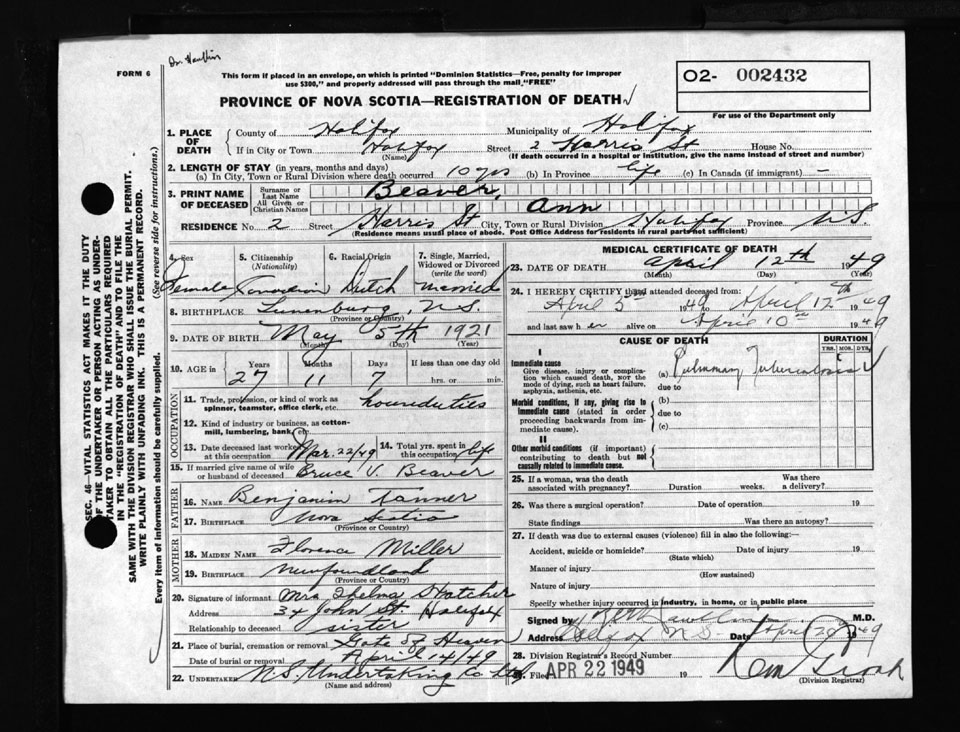 FORM 6
This form if placed in an envelope, on which is printed "Dominion Statistics—Free, penalty for improper
use $300," and properly addressed will pass through the mail "FREE"
O2- 002432
PROVINCE OF NOVA SCOTIA—REGISTRATION OF DEATH
For use of the Department only
1. PLACE OF DEATH
County of Halifax Municipality of Halifax
If in City or Town Halifax Street 2 Harris St House No.
(Name) (If death occurred in a hospital or institution, give the name instead of street and number)
2. LENGTH OF STAY (in years, months and days)
(a) In City, Town or Rural Division where death occurred 10 yrs (b) In Province life (c) In Canada (if immigrant) —
3. PRINT NAME OF DECEASED
Surname or Last Name Beaver,
All Given or Christian Names Ann
RESIDENCE No. 2 Street Harris St City, Town or Rural Division Halifax Province N.S.
(Residence means usual place of abode. Post Office Address for residents in rural parts not sufficient)
4. Sex Female
5. Citizenship (Nationality) Canadian
6. Racial Origin Dutch
7. Single, Married, Widowed or Divorced (write the word) married
8. BIRTHPLACE Lunenburg, N.S.
(Province or Country)
9. DATE OF BIRTH May 5th 1921
(Month) (Day) (Year)
10. AGE in Years Months Days If less than one day old
27 11 7 hrs. or min.
OCCUPATION
11. Trade, profession, or kind of work as
spinner, teamster, office clerk, etc. houseduties
12. Kind of industry or business, as cotton-
mill, lumbering, bank, etc.
13. Date deceased last worked at this occupation Mar. 22/49
14. Total yrs. spent in this occupation life
15. If married give name of wife
or husband of deceased Bruce V. Beaver
FATHER
16. NAME Benjamin Tanner
17. BIRTHPLACE Nova Scotia
(Province or Country)
MOTHER
18. MAIDEN NAME Florence Miller
19. BIRTHPLACE Newfoundland
(Province or Country)
20. Signature of informant Mrs Thelma Hatcher
Address 34 John St. Halifax
Relationship to deceased sister
21. Place of burial, cremation or removal Gate of Heaven
Date of burial or removal April 14/49
22. UNDERTAKER N.S. Undertaking Co Ltd
(Name and address)
MEDICAL CERTIFICATE OF DEATH
23. DATE OF DEATH April 12th 1949
(Month) (Day) (Year)
24. I HEREBY CERTIFY that I attended deceased from:
April 5th 1949 to April 12th 1949
and last saw h er alive on April 10th 1949
CAUSE OF DEATH
DURATION
YRS. MOS. DYS.
I
Immediate cause
Give disease, injury or complication which caused death, not the mode of dying, such as heart failure, asphyxia, asthenia, etc.
(a) Pulmonary Tuberculosis
due to
Morbid conditions, if any, giving rise to immediate cause (stated in order proceeding backwards from immediate cause).
(b)
due to
(c)
II
Other morbid conditions (if important) contributing to death but not causally related to immediate cause.
25. If a woman, was the death
associated with pregnancy? Duration weeks. Was there a delivery?
26. Was there a surgical operation? Date of operation 19
State findings Was there an autopsy?
27. If death was due to external causes (violence) fill in also the following:
Accident, suicide or homicide? Date of injury 19
(State which)
Manner of injury
(How sustained)
Nature of injury
Specify whether injury occurred in industry, in home, or in public place
Signed by M.D.
Address Halifax N.S. Date April 20 1949
28. Division Registrar's Record Number
29. Filed APR 22 1949 19
(Division Registrar)
SEC. 46—VITAL STATISTICS ACT MAKES IT THE DUTY
OF THE UNDERTAKER OR PERSON ACTING AS UNDER-
TAKER TO OBTAIN ALL THE PARTICULARS REQUIRED
IN THE "REGISTRATION OF DEATH" AND TO FILE THE
SAME WITH THE DIVISION REGISTRAR WHO SHALL ISSUE THE BURIAL PERMIT.
WRITE PLAINLY WITH UNFADING INK. THIS IS A PERMANENT RECORD.
Every item of information should be carefully supplied. (See reverse side for instructions.)